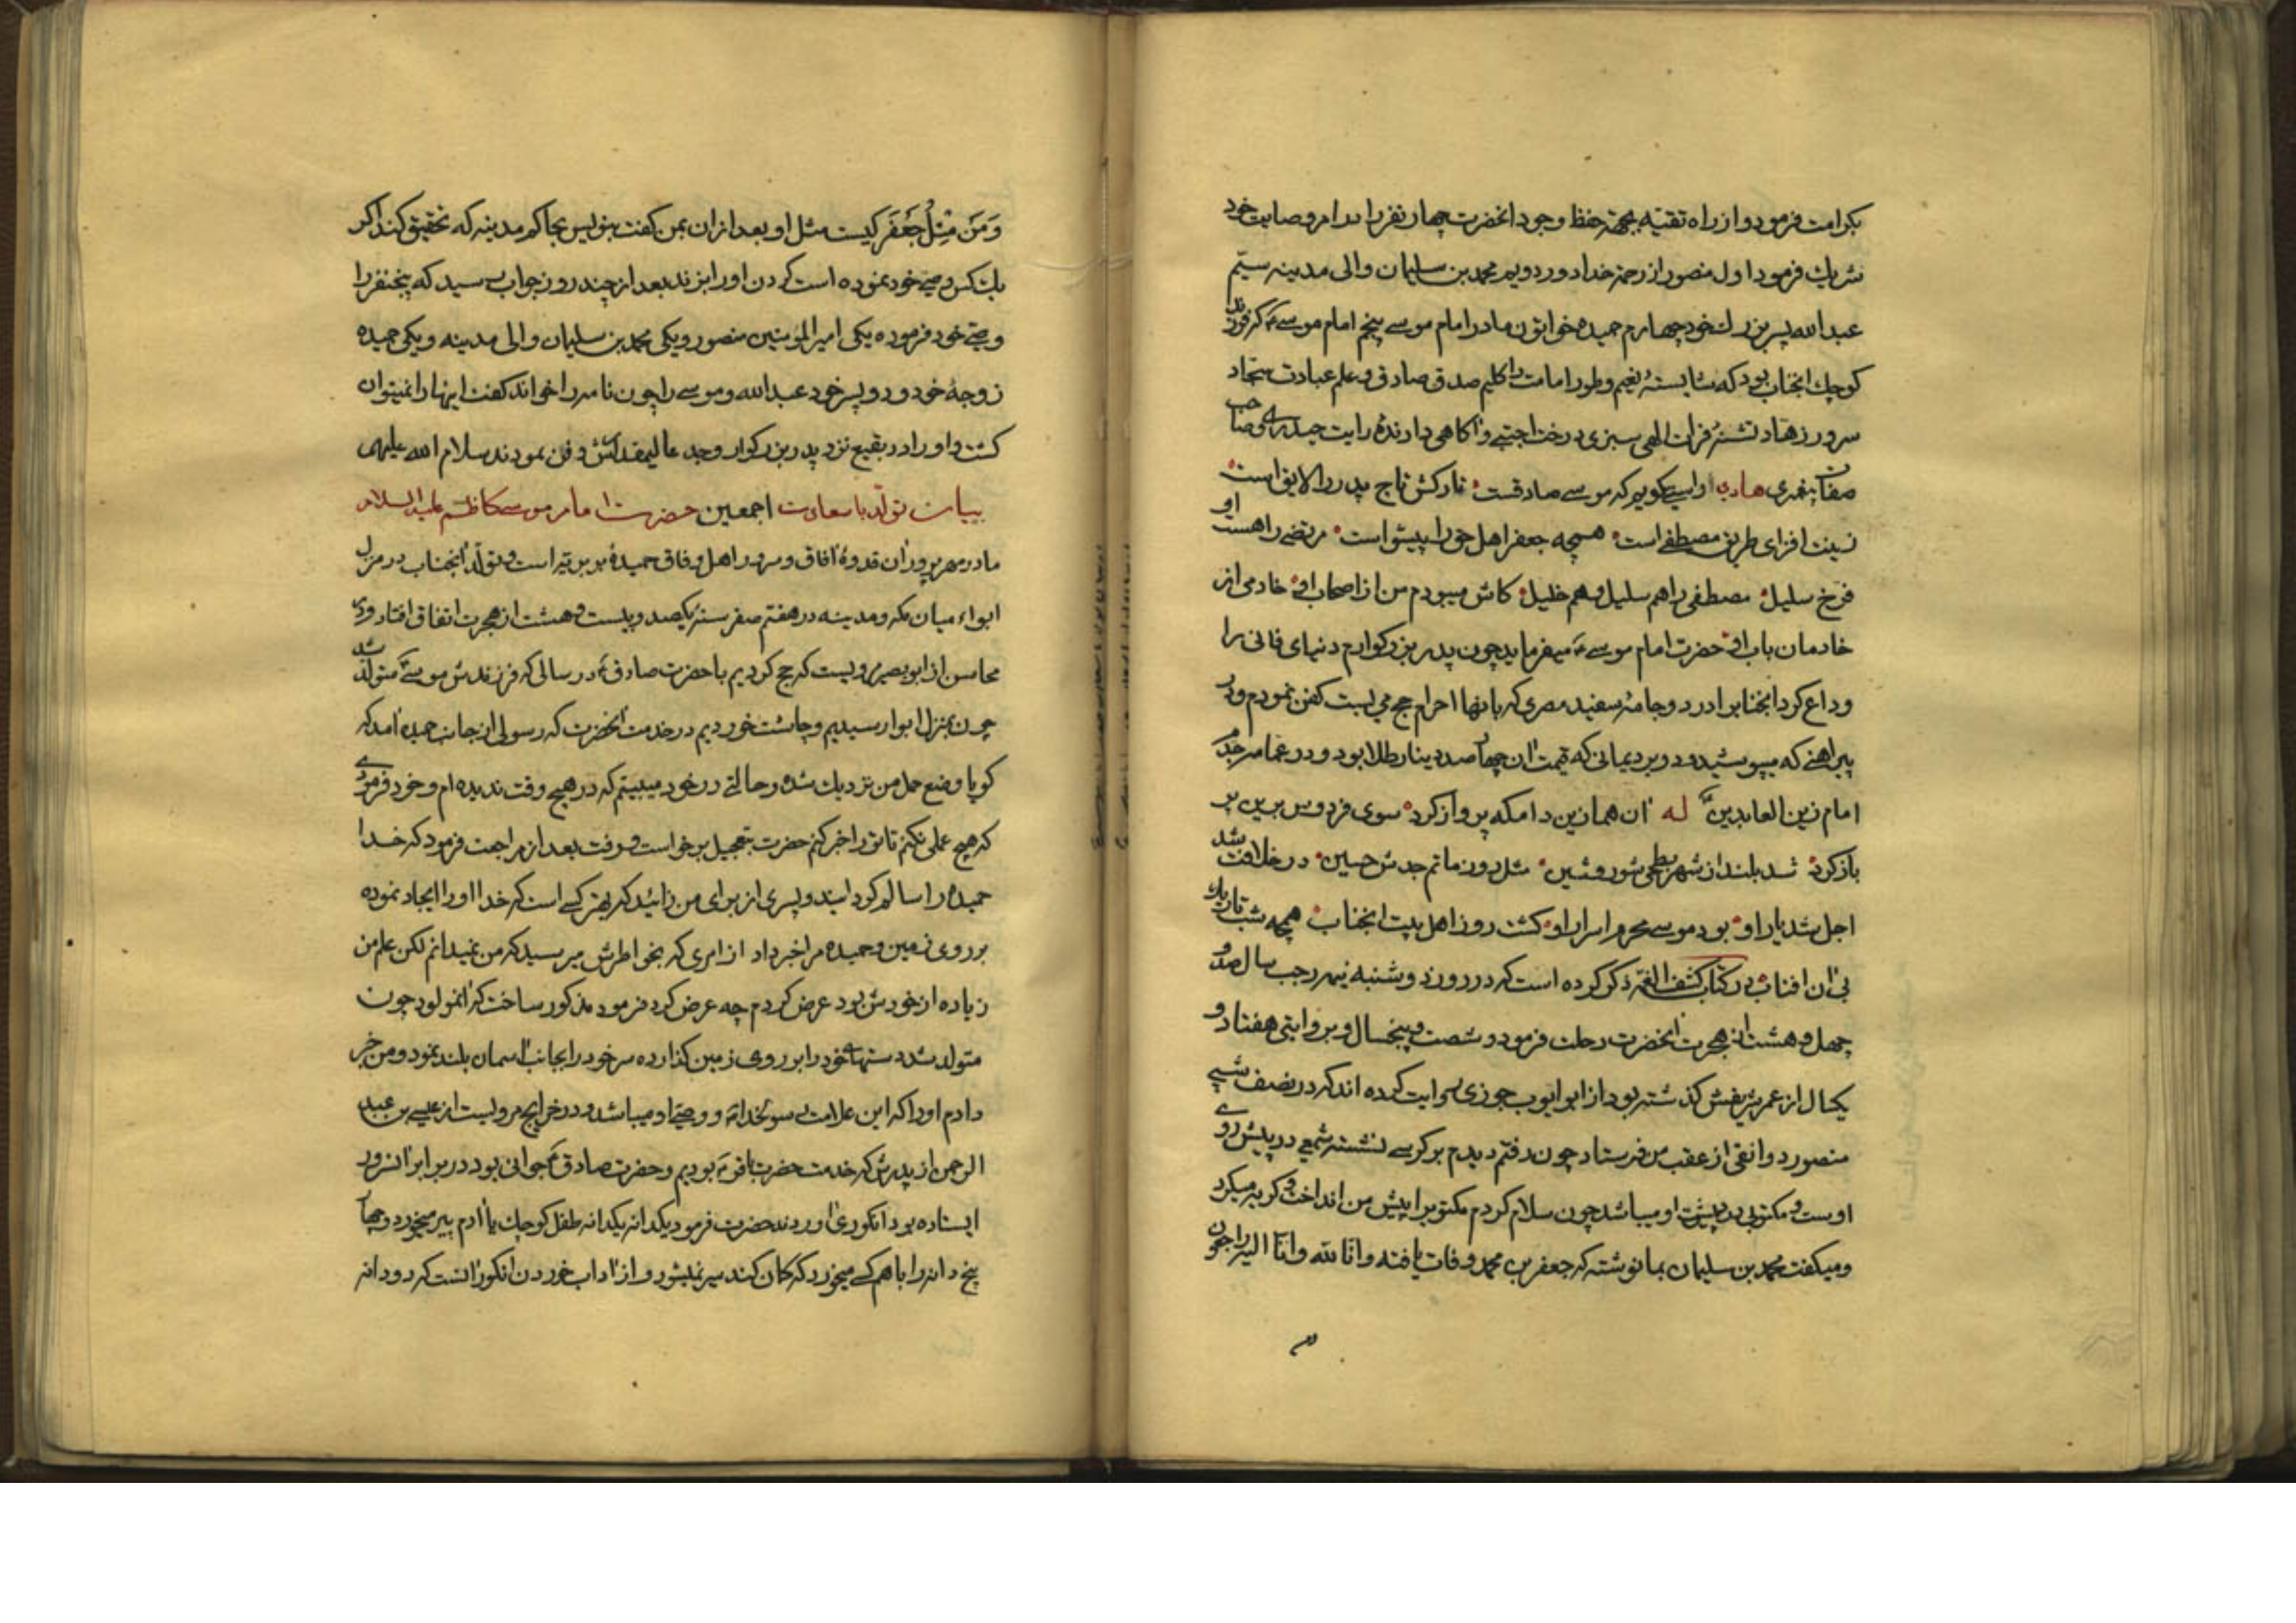 بکرامت فرمود و از راه تقیّه بجهة حفظ وجود انحضرت چهار نفر را در امر وصایت خود
شریك فرمود اول منصور از رحمة خدا دور دویم محمد بن سلیمان والی مدینه سیّم
عبد الله پسر بزرك خود چهارم حمیده خواتون مادر امام موسے پنجم امام موسےؑ که فرزند
کوچك انجناب بود که شایستهٔ نعیم وطور امامت را کلیم صدق صادق و علم عبادت سجاد
سرور زهاد تشنهٔ فرات الهی سبزی درخت اجتبے و اکاهی دارندهٔ رایت حیدرے و صاحب
صفات پیغمبری هادی اوایسے کویم که موسے صادقست تارکش تاج پدر را لایق است
زینت افزای طریق مصطفے است همچه جعفر اهل حق را پیشوا است مرتضے را هست او
فرخ سلیل مصطفی را هم سلیل و هم خلیل کاش میبودم من از اصحاب او خادمی از
خادمان باب او حضرت امام موسےؑ میفرماید چون پدر بزرکوارم دنیای فانی را
وداع کرد انجناب را در دو جامهٔ سفید مصری که بانها احرام حج می بست کفن نمودم و در
پیراهنے که میپوشید و در برد یمانی که قیمت ان چهار صد دینار طلا بود و در عمامه جدم
امام زین العابدینؑ له ان هما زین دامکه پرواز کرد سوی فردوس برین پر
باز کرد شد بلند از شهر بطحی شور و شین مثل روز ماتم جدش حسین در خلافت شد
اجل شد یار او بود موسے محرم اسرار او کشت روز اهل بیت انجناب همچه شب تاریك
بی ان افتاب در کتاب کشف الغمّه ذکر کرده است که در روز دوشنبه نیمه رجب سال صد و
چهل و هشت از هجرت انحضرت رحلت فرمود و شصت و پنجسال و بروایتی هفتاد و
یکسال از عمر شریفش کذشته بود از ابو ایوب جوزی روایت کرده اند که در نصف شبے
منصور دوانقی از عقب من فرستاد چون رفتم دیدم بر کرسے نشسته شمعی در پیش روے
اوست و مکتوبی در پیشت او میباشد چون سلام کردم مکتوب را پیش من انداخت و کریه میکرد
و میکفت محمد بن سلیمان بما نوشته که جعفر بن محمد وفات یافته و انّا لله و انّا الیه راجعون
وَمَن مِثلُ جَعفَر کیست مثل او بعد از ان بمن کفت بنویس بحاکم مدینه که تحقیق کند اکر
یك کس وصے خود نموده است کردن او را بزند بعد از چند روز جواب رسید که پنجنفر را
وصے خود فرموده یکی امیر المؤمنین منصور و یکی محمد بن سلیمان والی مدینه و یکی حمیده
زوجهٔ خود و دو پسر خود عبد الله و موسے را چون نامه را خواند کفت اینها را نمیتوان
کشت و او را در بقیع نزد پدر بزرکوار و جد عالیمقدارش دفن نمودند سلام الله علیهم
بیان تولّد با سعادت اجمعین حضرت امام موسے کاظم علیه السلام
مادر مهرپرور ان قدوهٔ افاق و سرور اهل وفاق حمیدهٔ بربریّه است و تولّد انجناب در منزل
ابواء میان مکه و مدینه در هفتم صفر سنهٔ یکصد و بیست و هشت از هجرت اتفاق افتاد و در
محاسن از ابو بصیر مرویست که حج کردیم با حضرت صادقؑ در سالی که فرزندش موسےؑ متولّد شد
چون بمنزل ابوا رسیدیم و چاشت خوردیم در خدمت انحضرت که رسولی از جانب حمیده امد که
کویا وضع حمل من نزدیك شده و حالتے در خود میبینم که در هیچ وقت ندیده ام و خود فرمودے
که هیچ عملی نکنم تا تو را خبر کنم حضرت بتعجیل برخواست و رفت بعد از مراجعت فرمود که خدا
حمیده را سالم کردانید و پسری از برای من زائید که بهتر کسے است که خدا او را ایجاد نموده
بر روی زمین و حمیده مرا خبر داد از امری که بخاطرش میرسید که من نمیدانم لکن علم من
زیاده از خودش بود عرض کردم چه عرض کرد فرمود مذکور ساخت که انمولود چون
متولد شد دستهاے خود را بر روی زمین کذارده سر خود را بجانب اسمان بلند نمود و من خبر
دادم او را که این علامت رسولخدا و وصے او میباشد و در خرایج مرویست از عیسے بن عبد
الرحمن از پدرش که خدمت حضرت باقرؑ بودیم و حضرت صادقؑ جوانی بود در برابر انسرور
ایستاده بود انکوری اوردند حضرت فرمود یکدانه یکدانه طفل کوچك یا ادم پیر میخورد و چهار
پنج دانه را با هم کسے میخورد که کمان کند سیر نمیشود و از اداب خوردن انکور انست که دو دانه